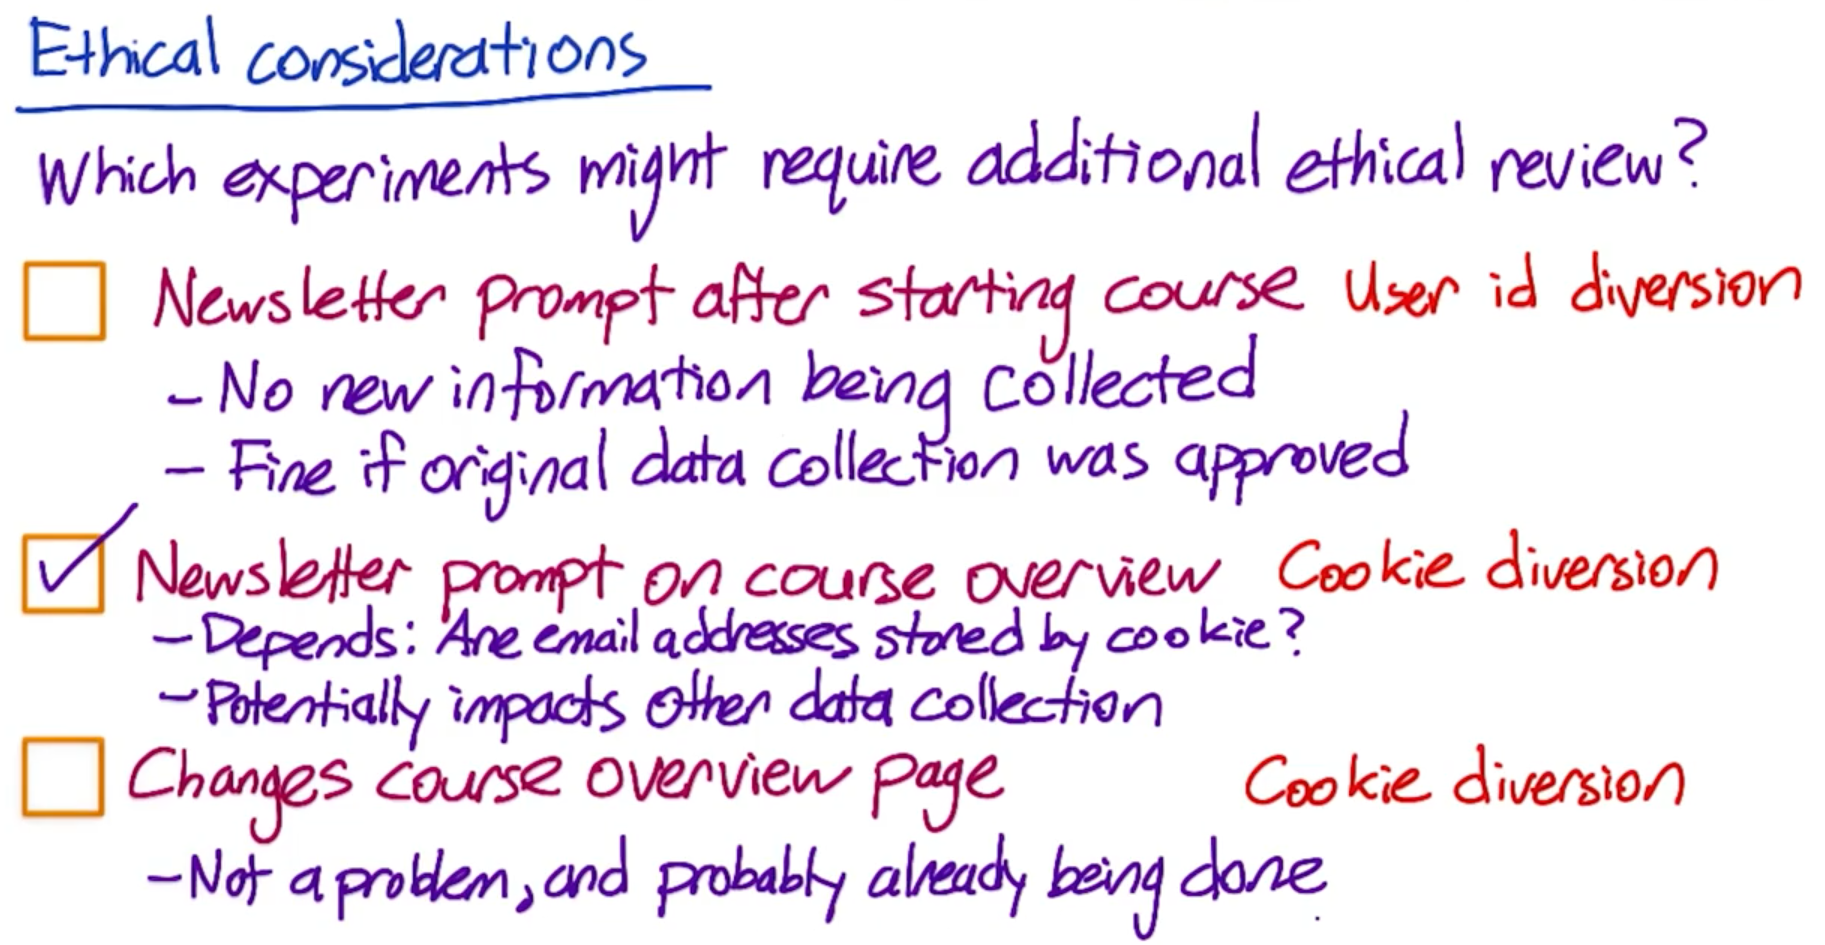 Ethical considerations
Which experiments might require additional ethical review?
Newsletter prompt after starting course User id diversion
- No new information being collected
- Fine if original data collection was approved
Newsletter prompt on course overview Cookie diversion
- Depends: Are email addresses stored by cookie?
- Potentially impacts other data collection
Changes course overview page Cookie diversion
- Not a problem, and probably already being done